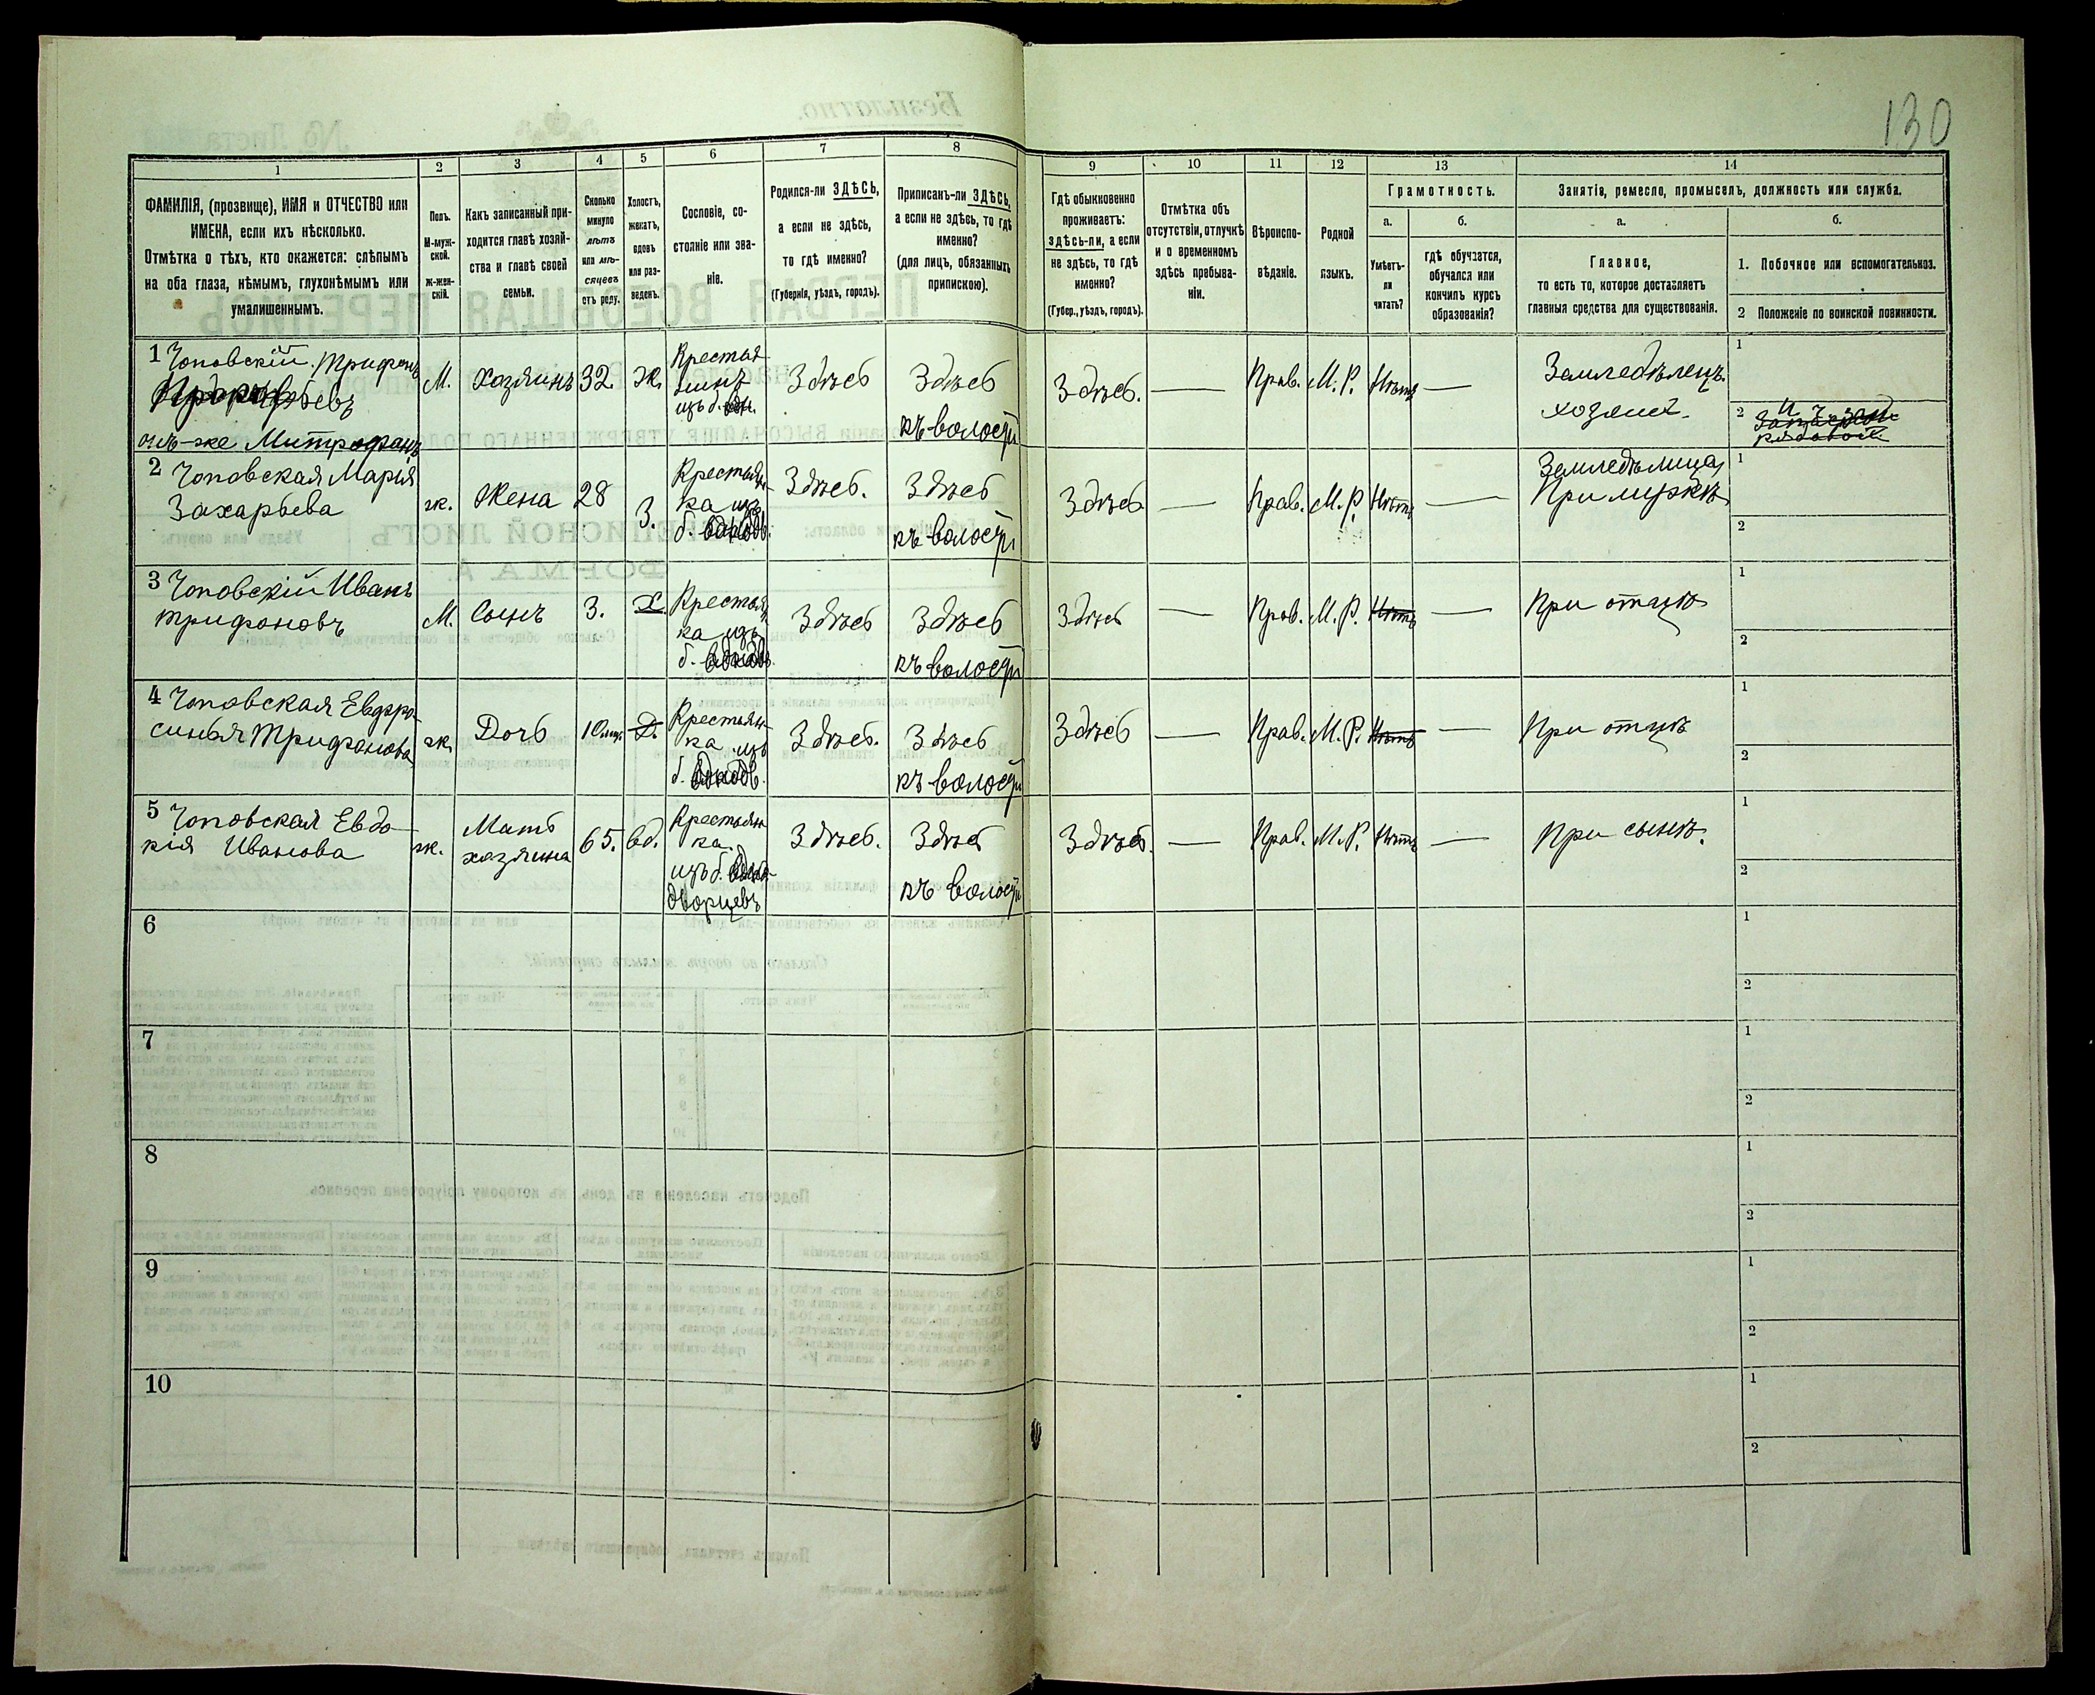 130
1
2
3
4
5
6
7
8
9
10
11
12
13
14
ФАМИЛІЯ, (прозвище), ИМЯ и ОТЧЕСТВО или
ИМЕНА, если ихъ нѣсколько.
Отмѣтка о тѣхъ, кто окажется: слѣпымъ
на оба глаза, нѣмымъ, глухонѣмымъ или
умалишеннымъ.
Полъ.
М-муж-
ской.
ж-жен-
скій.
Какъ записанный при-
ходится главѣ хозяй-
ства и главѣ своей
семьи.
Сколько
минуло
лѣтъ
или мѣ-
сяцевъ
отъ роду.
Холостъ,
женатъ,
вдовъ
или раз-
веденъ.
Сословіе, со-
стояніе или зва-
ніе.
Родился-ли ЗДѢСЬ,
а если не здѣсь,
то гдѣ именно?
(Губернія, уѣздъ, городъ).
Приписанъ-ли ЗДѢСЬ,
а если не здѣсь, то гдѣ
именно?
(для лицъ, обязанныхъ
припискою).
Гдѣ обыкновенно
проживаетъ:
здѣсь-ли, а если
не здѣсь, то гдѣ
именно?
(Губер., уѣздъ, городъ).
Отмѣтка объ
отсутствіи, отлучкѣ
и о временномъ
здѣсь пребыва-
ніи.
Вѣроиспо-
вѣданіе.
Родной
языкъ.
Грамотность.
а.
б.
Умѣетъ-
ли
читать?
гдѣ обучается,
обучался или
кончилъ курсъ
образованія?
Занятіе, ремесло, промыселъ, должность или служба.
а.
б.
Главное,
то есть то, которое доставляетъ
главныя средства для существованія.
1. Побочное или вспомогательное.
2 Положеніе по воинской повинности.
1 Чоповскій Трифонъ
онъ-же Митрофанъ
М.
Хозяинъ
32.
Ж.
Крестья-
нинъ
изъ б.
Здѣсь
Здѣсь
къ волости
Здѣсь.
—
Прав.
М. Р.
Нѣтъ
—
Земледѣлецъ
хозяинъ
1
2
2 Чоповская Марія
Захарьева
ж.
Жена
28
З.
Крестьян-
ка изъ
б.
Здѣсь.
Здѣсь
къ волости
Здѣсь
—
Прав.
М. Р.
Нѣтъ
—
Земледѣлица
При мужѣ
1
2
3 Чоповскій Иванъ
Трифоновъ
М.
Сынъ
3.
Х.
Крестьян-
ка изъ
б.
Здѣсь
Здѣсь
къ волости
Здѣсь
—
Прав.
М. Р.
Нѣтъ
—
При отцѣ
1
2
4 Чоповская Евфро-
синья Трифонова
ж.
Дочь
10 мц.
Д.
Крестьян-
ка изъ
б.
Здѣсь.
Здѣсь
къ волости
Здѣсь
—
Прав.
М. Р.
Нѣтъ
—
При отцѣ
1
2
5 Чоповская Евдо-
кія Иванова
ж.
Мать
хозяина
65.
вд.
Крестьян-
ка
изъ б.
дворцевъ
Здѣсь.
Здѣсь
къ волости
Здѣсь.
—
Прав.
М. Р.
Нѣтъ
—
При сынѣ.
1
2
6
1
2
7
1
2
8
1
2
9
1
2
10
1
2